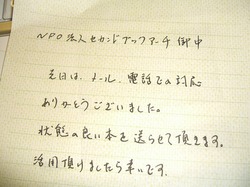 NPO法人セカンドブックアーチ 御中
先日は、メール、電話での対応
ありがとうございました。
状態の良い本を送らせて頂きます。
活用頂けましたら幸いです。